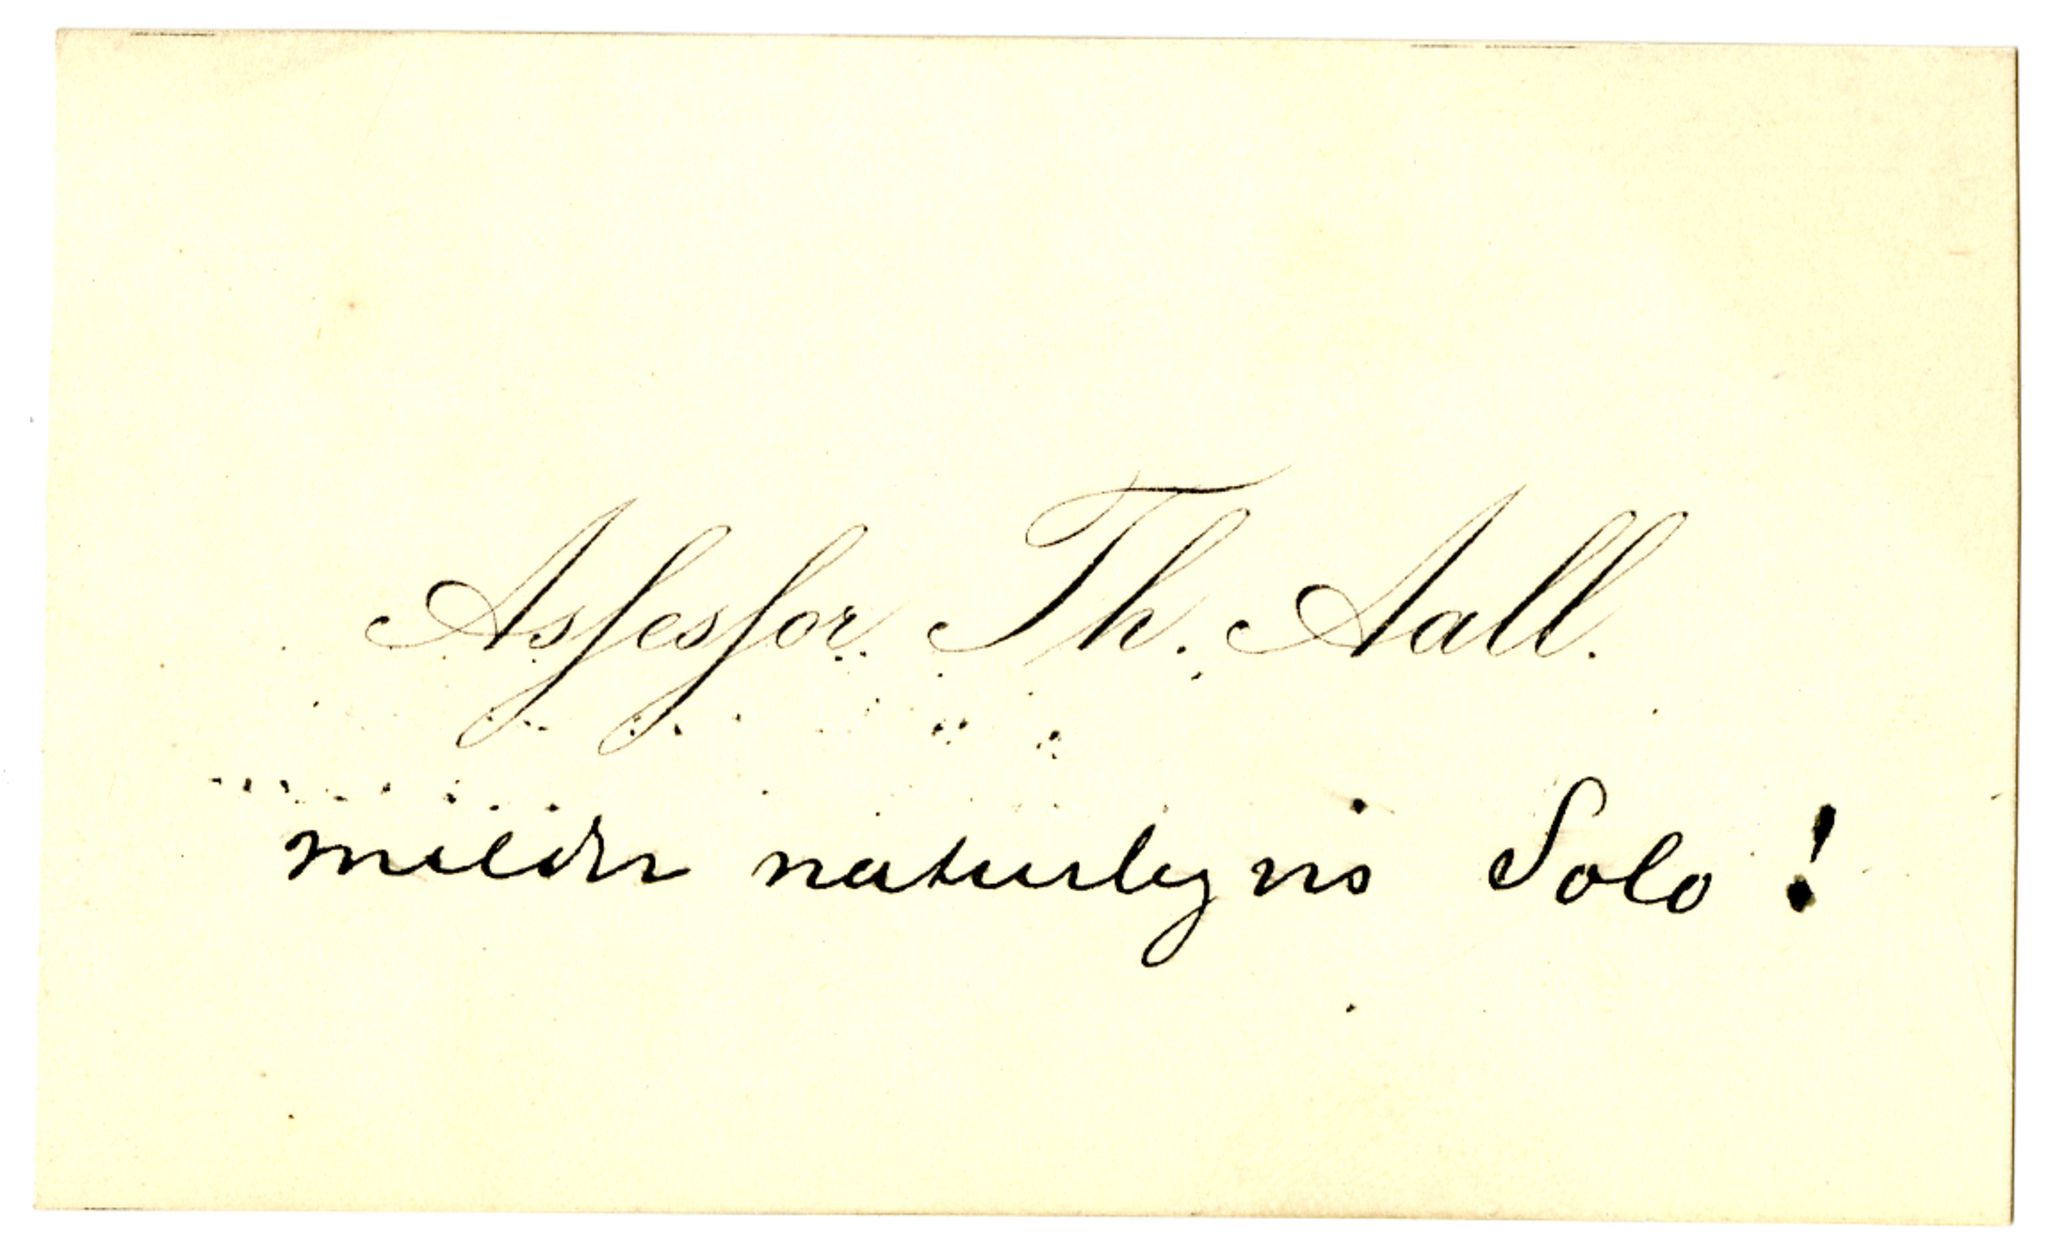 Assessor Th. Aall.
melder naturligvis Solo!